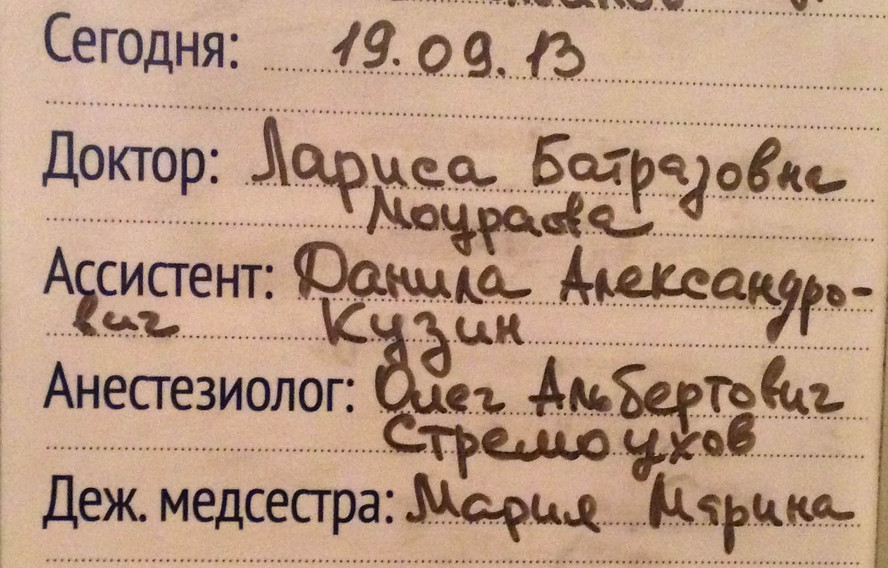 Сегодня: 19.09.13
Доктор: Лариса Батразовна
Моураова
Ассистент: Данила Александро-
вич Кузин
Анестезиолог: Олег Альбертович
Стремоухов
Деж. медсестра: Мария Мярина